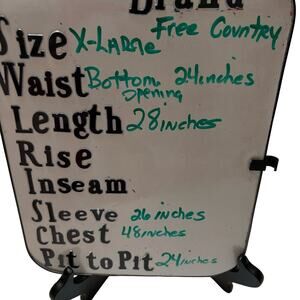 Brand Free Country
Size X-LARGE
Waist Bottom opening 24inches
Length 28inches
Rise
Inseam
Sleeve 26 inches
Chest 48inches
Pit to Pit 24inches